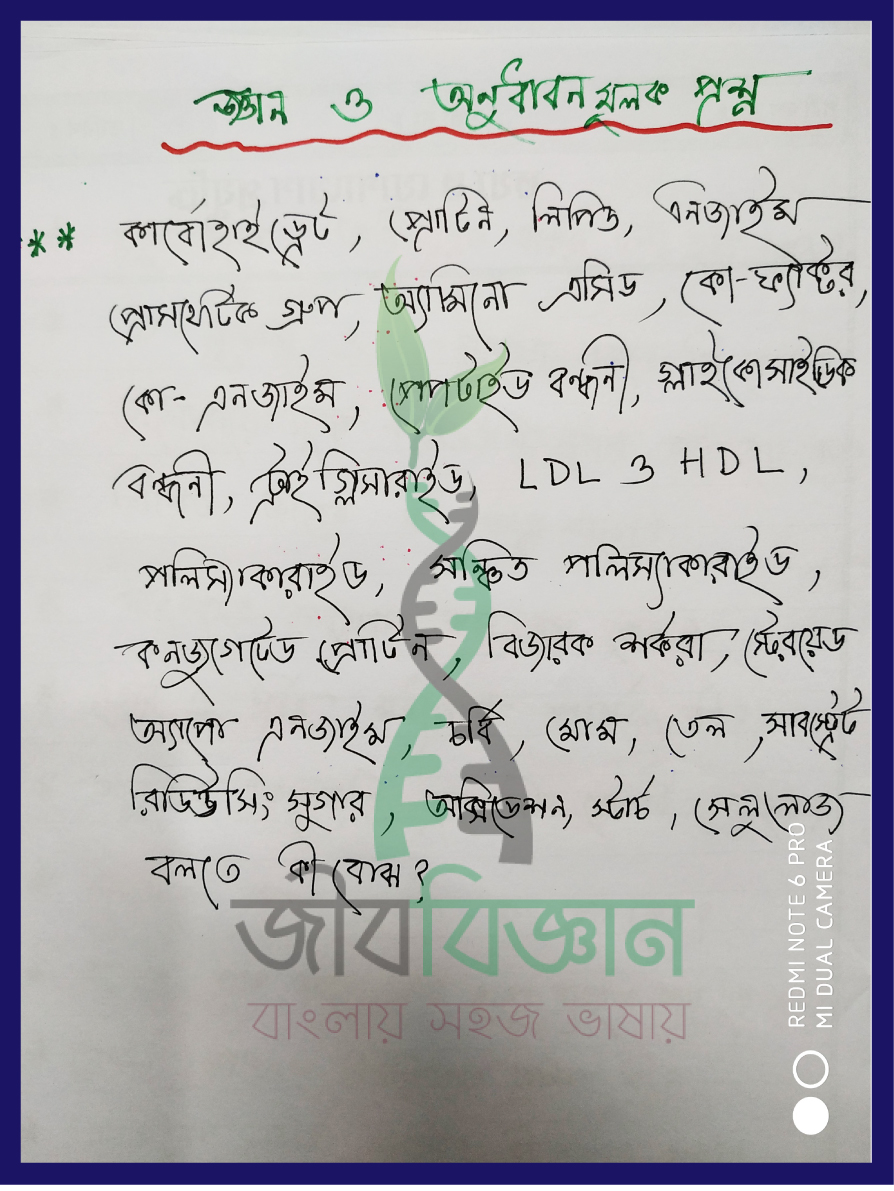 জ্ঞান ও অনুধাবন মূলক প্রশ্ন
** কার্বোহাইড্রেট, প্রোটিন, লিপিড, এনজাইম
প্রোসথেটিক গ্রুপ, অ্যামিনো এসিড, কো-ফ্যাক্টর,
কো-এনজাইম, পেপটাইড বন্ধনী, গ্লাইকোসাইডিক
বন্ধনী, ট্রাইগ্লিসারাইড, LDL ও HDL,
পলিস্যাকারাইড, সঞ্চিত পলিস্যাকারাইড,
কনজুগেটেড প্রোটিন, বিজারক শর্করা, স্টেরয়েড
অ্যাপো এনজাইম, চর্বি, মোম, তেল, সাবস্ট্রেট
রিডিউসিং সুগার, অক্সিডেশন, স্টার্চ, সেলুলোজ
বলতে কী বোঝ?
জীববিজ্ঞান
বাংলায় সহজ ভাষায়
REDMI NOTE 6 PRO
MI DUAL CAMERA